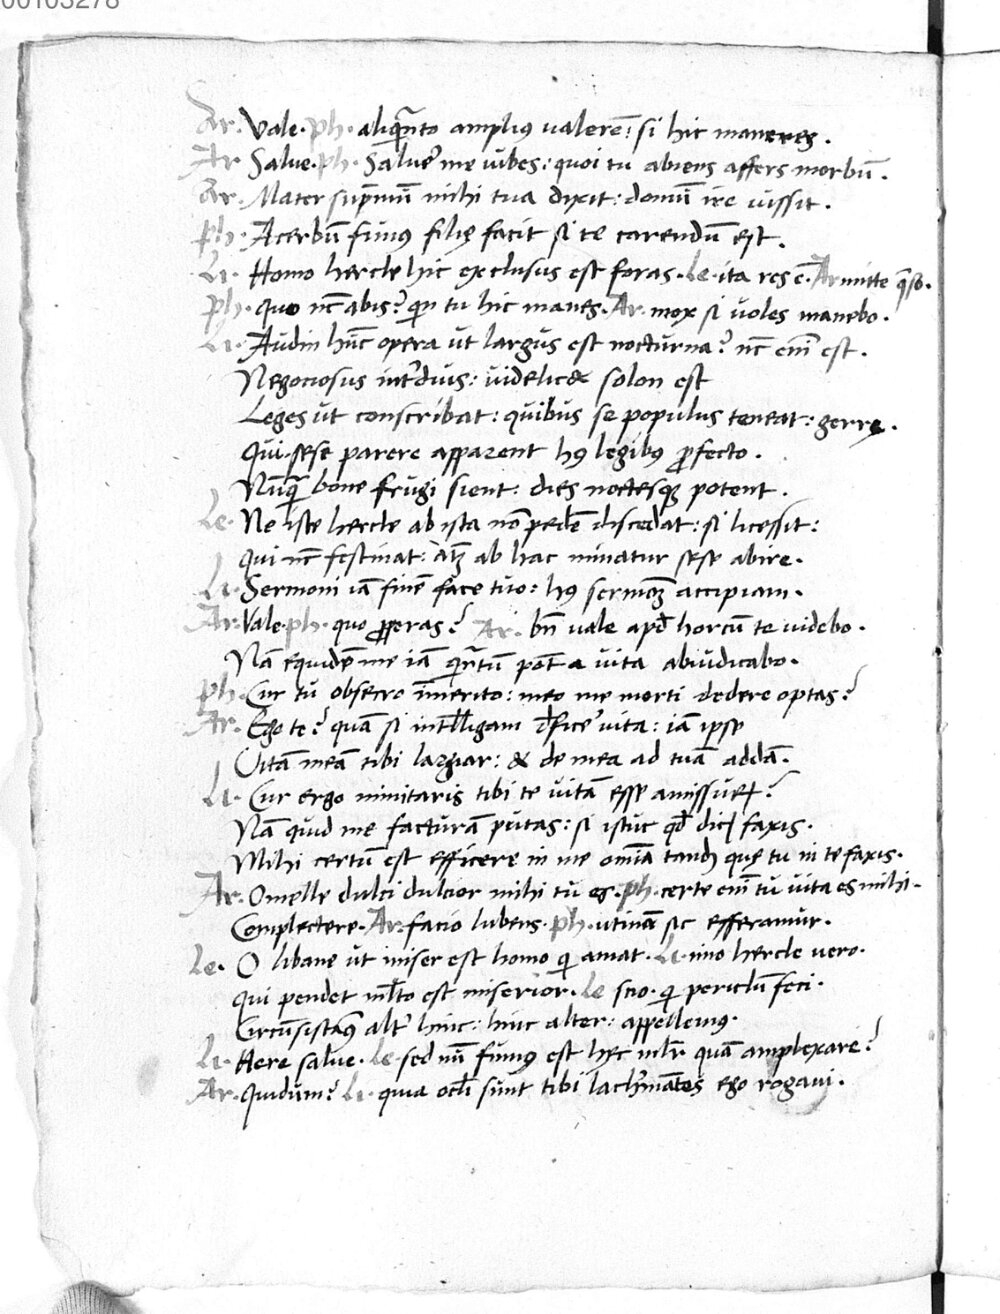 00103278
Ar. Vale. ph. aliqñto amplius valerē: si hic maneres.
Ar. Salue. ph. Saluer̉ me iubes: quoi tu abiens affers morbū.
Ar. Mater sup̄mū mihi tua dixit: domū ire iussit.
Ph. Acerbū funus filię facit si te carendū est.
Li. Homo hercle hic exclusus est foras. Le. ita res ē. Ar. mitte q̄so.
Ph. quo nc̄ abis? qn̄ tu hic manes. Ar. mox si uoles manebo.
Li. Audin hūc opera ut largus est nocturna? nc̄ eni est.
Negociosus inter̉dius: uidelic& solon est
Leges ut conscribat: quibus se populus teneat: gerrę.
Qui sese parere apparent hꝰ legibus ꝓfecto.
Nūq̄ bone frugi sient: dies noctesqꝫ potent.
Le. Ne iste hercle ab ista nō pedē discedat: si licessit:
Qui nc̄ festinat: atqꝫ ab hac minatur sese abire.
Li. Sermoni iā finē face tuo: hꝰ sermonē accipiam.
Ar. Vale. ph. quo ꝓperas? Ar. bn̄ vale apd̄ horcū te uidebo.
Nā equidē me iā qñtū pōt a uita abiudicabo.
Ph. Cur tu obsecro īmerito: meo me morti dedere optas?
Ar. Ego te? quā si intell̄igam dficer̉ uita: iā ipse
Vitā meā tibi largiar: & de mea ad tuā addā.
Li. Cur ergo minitaris tibi te uitā esse amissurā?
Nā quid me facturā putas: si istuc qd̄ dicis faxis.
Mihi certū est efficere in me omīa eadē que tu in te faxis.
Ar. O melle dulci dulcior mihi tū es. ph. certe eni tu uita es mihi.
Complectere. Ar. facio lubens. ph. utinā sic efferamur.
Le. O libane ut miser est homo qi amat. Li. imo hercle uero.
Qui pendet ml̄to est miserior. Le scio. qi periclū feci.
Circūsistamꝰ alter̉ hinc: hinc alter: appellemꝰ.
Li. Here salue. Le. sed nū fumus est hęc ml̄r quā amplexare?
Ar. Quidum? Li. quia ocl̄i sunt tibi lachrimātes ego rogaui.